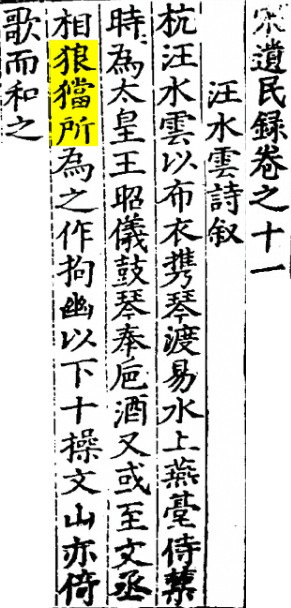 宋遺民録卷之十一
汪水雲詩叙
杭汪水雲以布衣携琴渡易水上燕臺侍禁
時為太皇王昭儀鼓琴奉巵酒又或至文丞
相狼犺所為之作拘幽以下十操文山亦倚
歌而和之